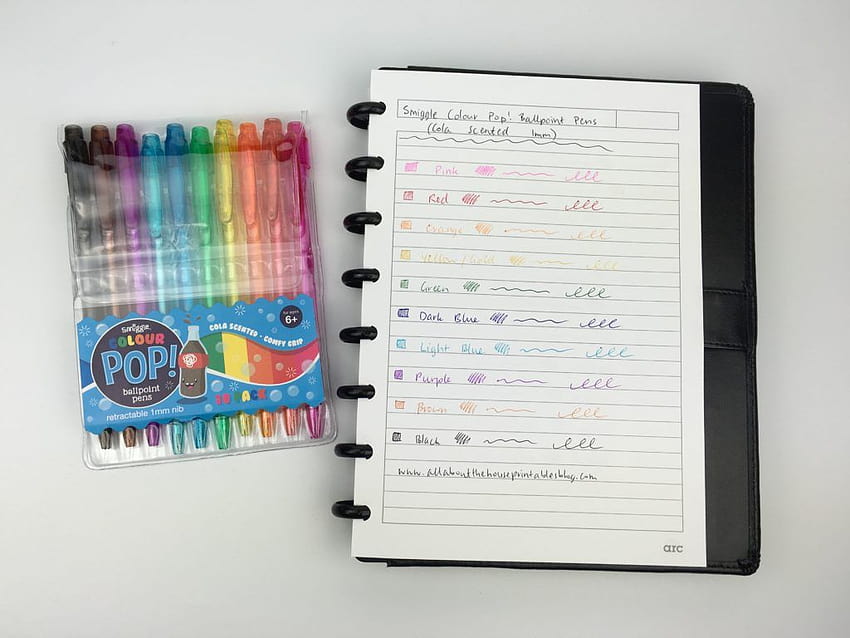 smiggle
COLOUR
POP!
ballpoint
pens
retractable 1mm nib
COLA SCENTED • COMFY GRIP
for ages
6+
10 PACK
Smiggle Colour Pop! Ballpoint Pens
(Cola scented 1mm)
Pink
Red
Orange
Yellow/Gold
Green
Dark Blue
Light Blue
Purple
Brown
Black
www.allaboutthehouseprintablesblog.com
arc